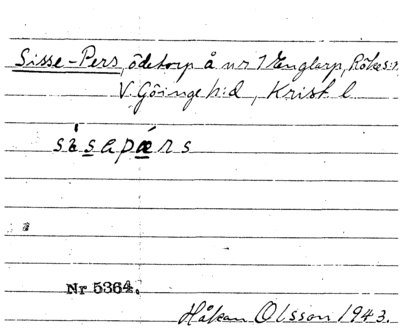 Sisse-Pers, ödetorp å nr 7 Englarp, Röke s:n,
V. Göinge h:d, Krist. l
sisapærs
Nr 5364.
Håkan Olsson 1943.